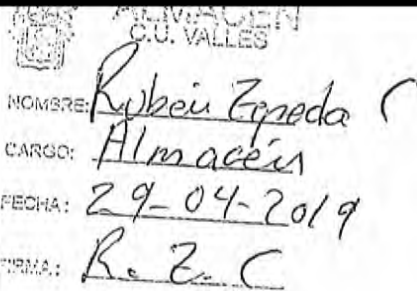 ALMACEN
C.U. VALLES
NOMBRE: Rubén Zepeda C
CARGO: Almacén
FECHA: 29-04-2019
FIRMA: R. Z. C